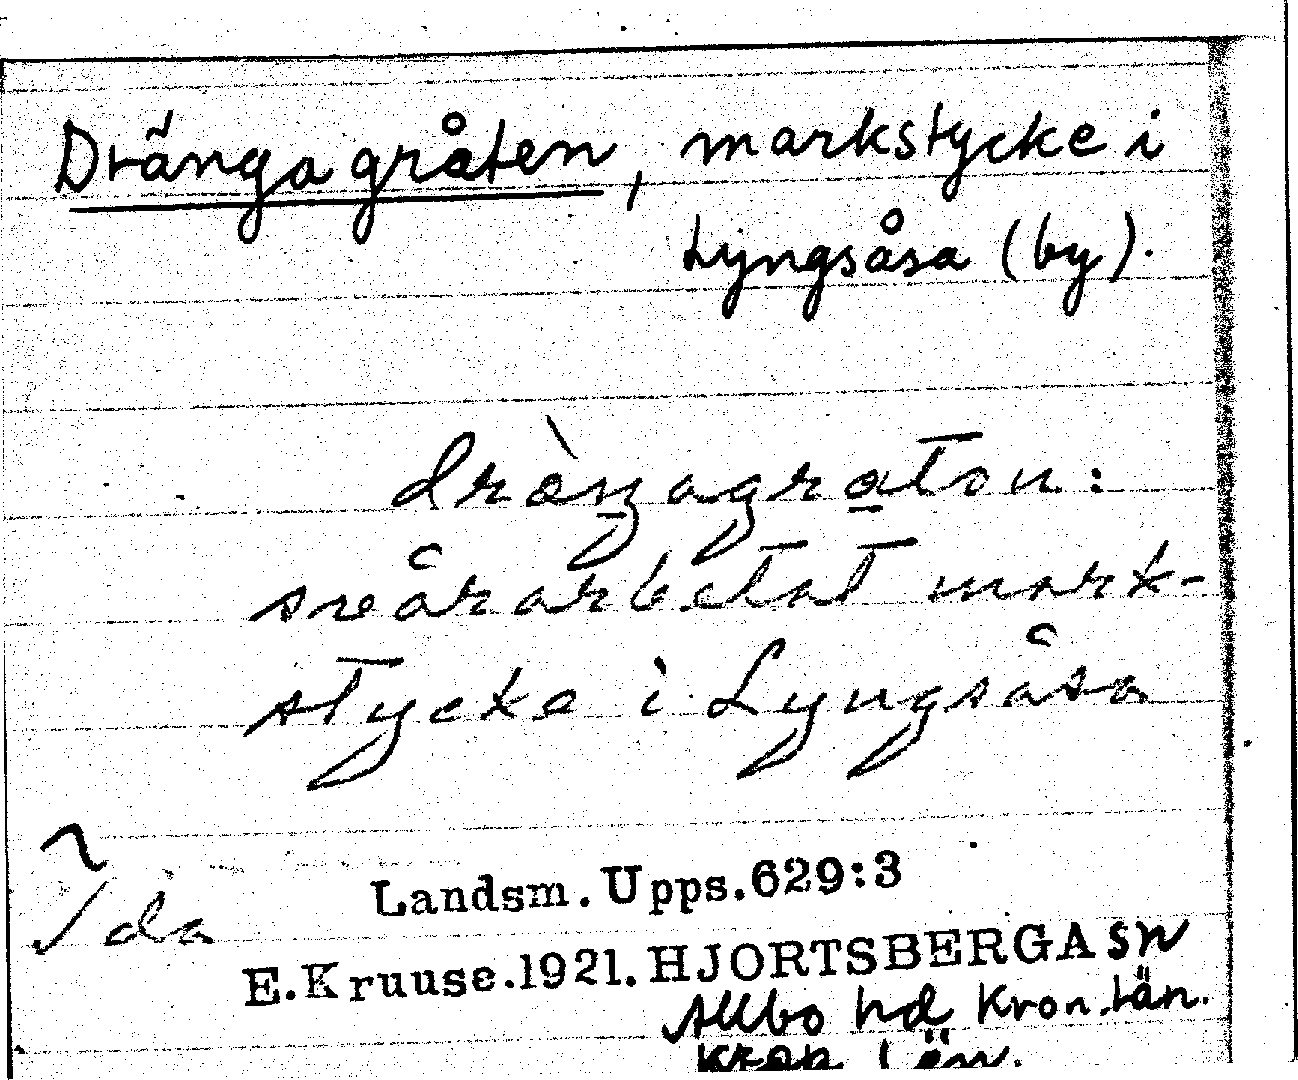 Drängagråten, markstycke i
Lyngsåsa (by).
dràŋagratən:
svårarbetat mark-
stycke i Lyngsåsa
Ida
Landsm. Upps. 629:3
E. Kruuse. 1921. HJORTSBERGA sn
Allbo hd Kron. län.
Kron. län.